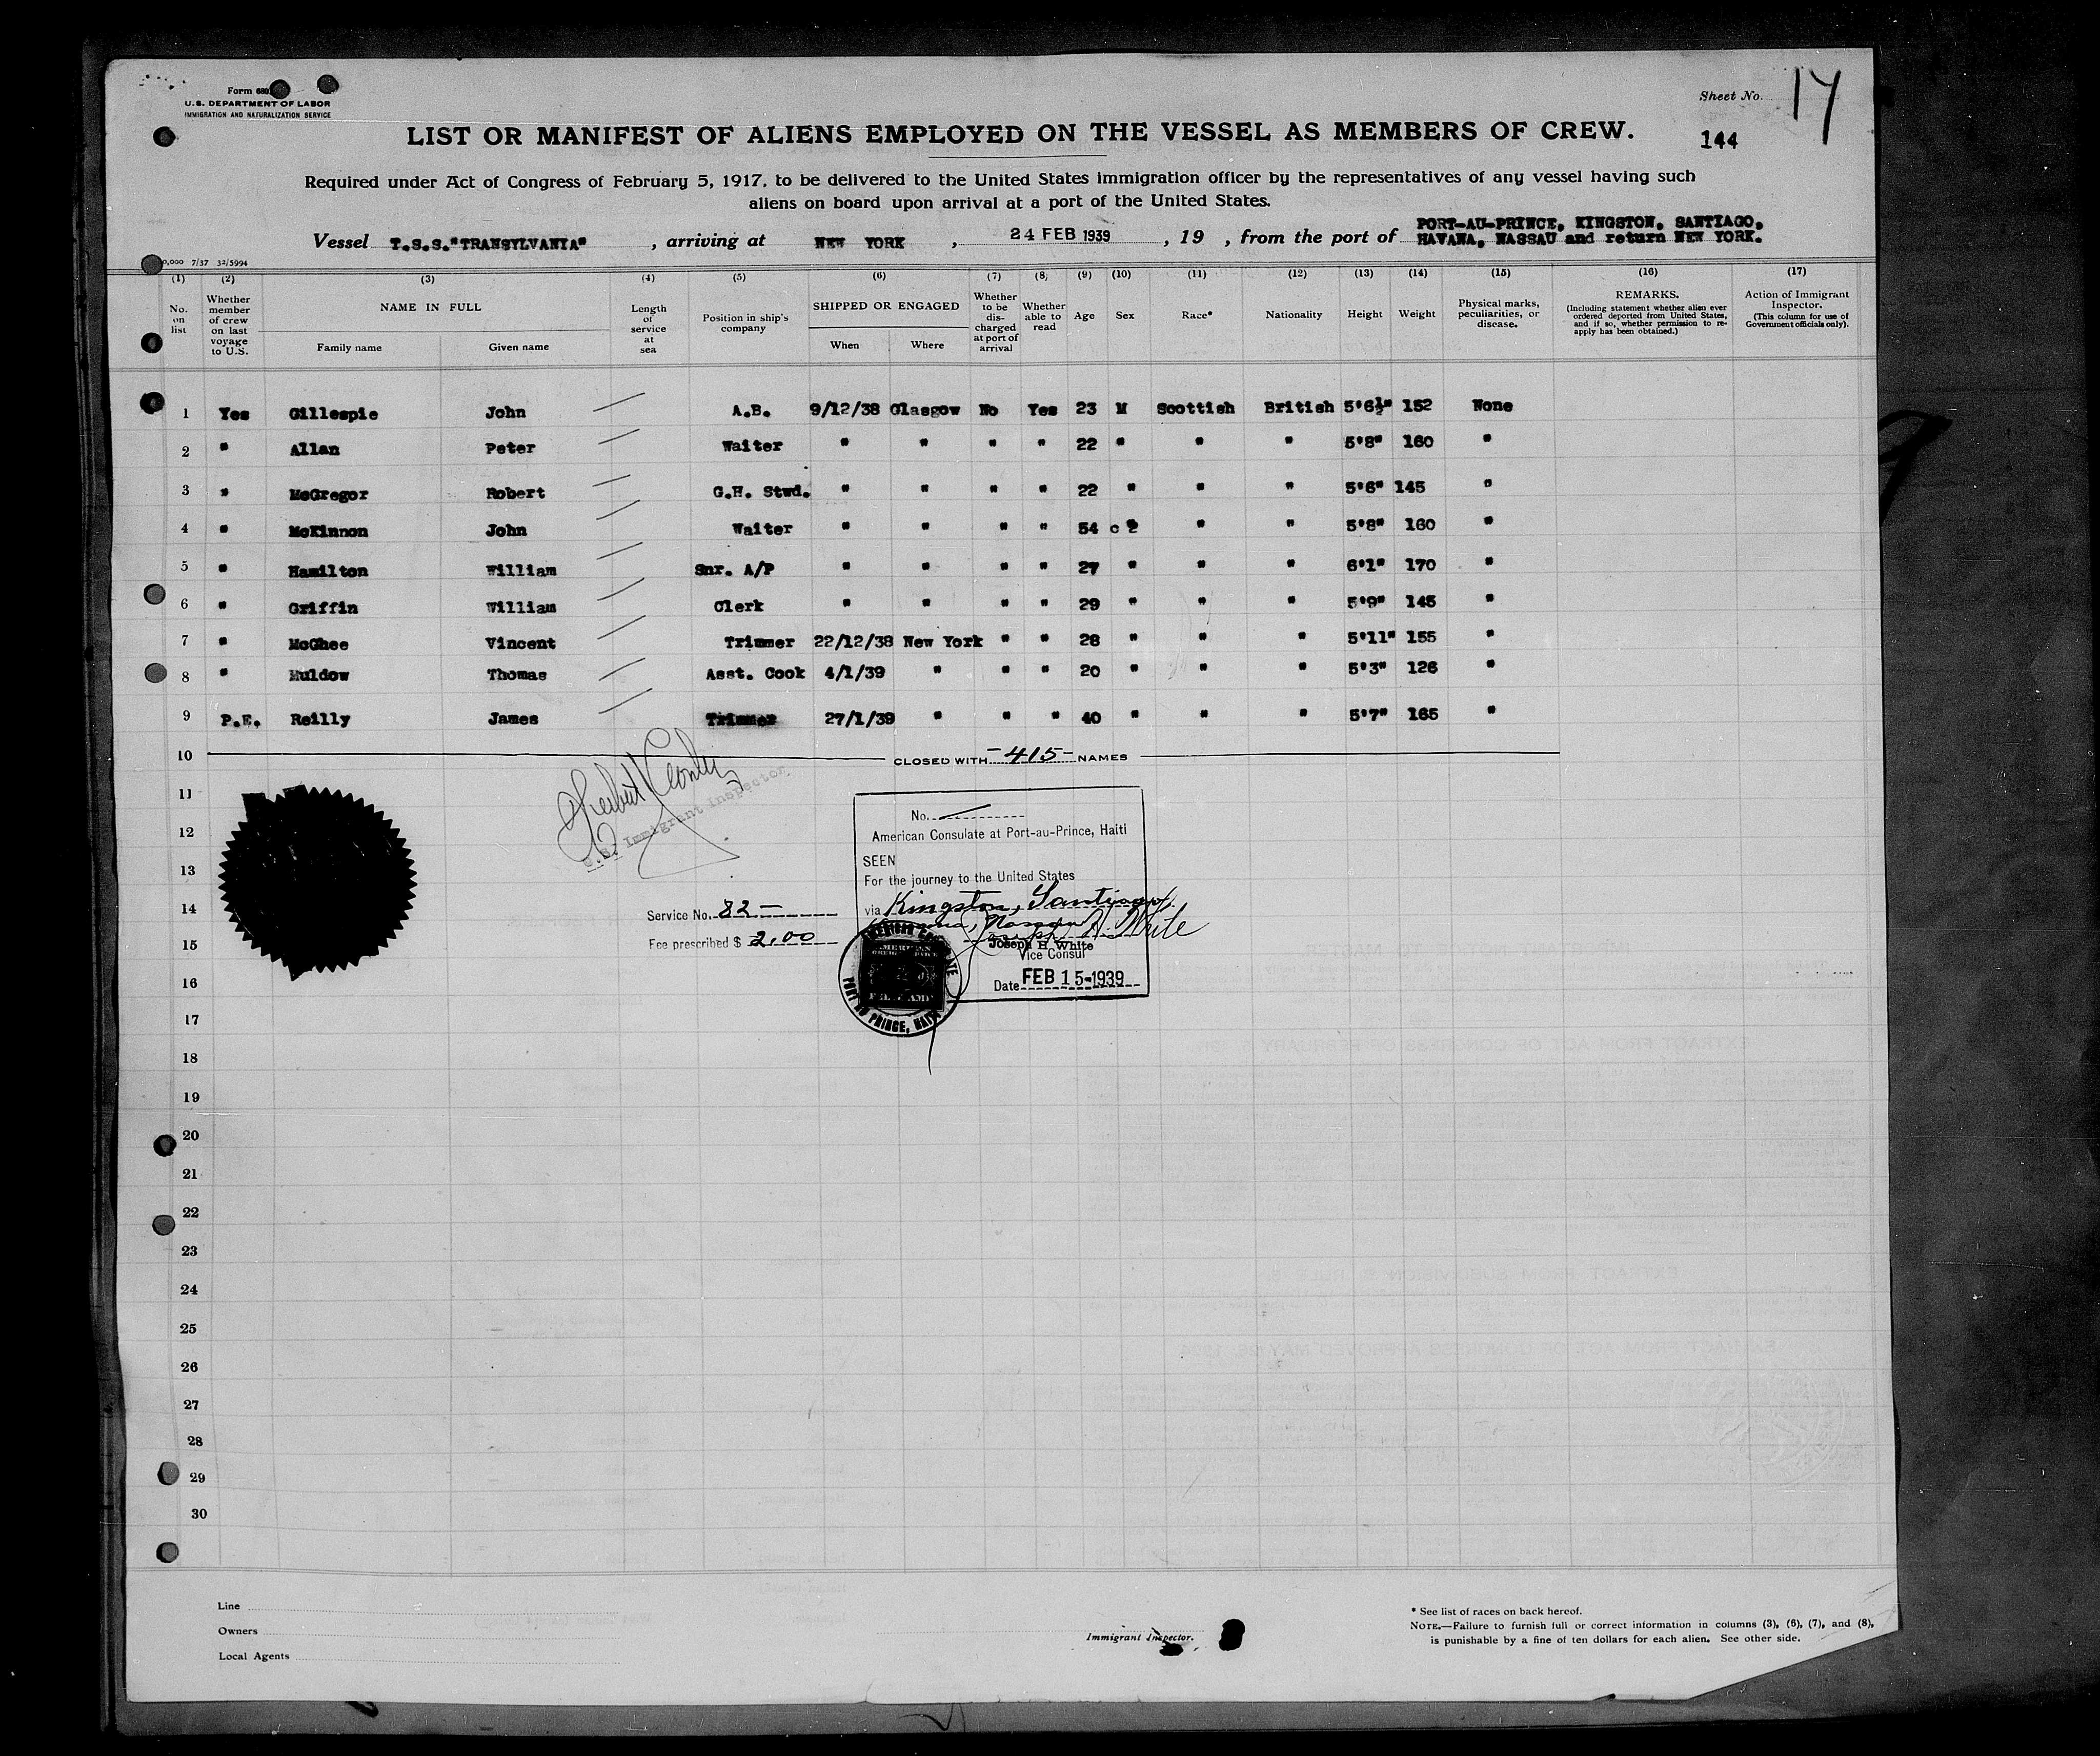 Form 680
U.S. DEPARTMENT OF LABOR
IMMIGRATION AND NATURALIZATION SERVICE
Sheet No. 17
144
LIST OR MANIFEST OF ALIENS EMPLOYED ON THE VESSEL AS MEMBERS OF CREW.
Required under Act of Congress of February 5, 1917, to be delivered to the United States immigration officer by the representatives of any vessel having such
aliens on board upon arrival at a port of the United States.
Vessel T.S.S."TRANSYLVANIA", arriving at NEW YORK, 24 FEB 1939, 19 , from the port of PORT-AU-PRINCE, KINGSTON, SANTIAGO,
HAVANA, NASSAU and return NEW YORK.
0,000 7/37 32/5994
(1) (2) (3) (4) (5) (6) (7) (8) (9) (10) (11) (12) (13) (14) (15) (16) (17)
No. on list
Whether member of crew on last voyage to U.S.
NAME IN FULL
Family name Given name
Length of service at sea
Position in ship's company
SHIPPED OR ENGAGED
When Where
Whether to be discharged at port of arrival
Whether able to read
Age
Sex
Race*
Nationality
Height
Weight
Physical marks, peculiarities, or disease.
REMARKS.
(Including statement whether alien ever ordered deported from United States, and if so, whether permission to reapply has been obtained.)
Action of Immigrant Inspector.
(This column for use of Government officials only).
1 Yes Gillespie John A.B. 9/12/38 Glasgow No Yes 23 M Scottish British 5'6½" 152 None
2 " Allan Peter Waiter " " " " 22 " " " 5'8" 160 "
3 " McGregor Robert G.H. Stwd. " " " " 22 " " " 5'6" 145 "
4 " McKinnon John Waiter " " " " 54 " " " 5'8" 160 "
5 " Hamilton William Snr. A/P " " " " 27 " " " 6'1" 170 "
6 " Griffin William Clerk " " " " 29 " " " 5'9" 145 "
7 " McGhee Vincent Trimmer 22/12/38 New York " " 28 " " " 5'11" 155 "
8 " Muldow Thomas Asst. Cook 4/1/39 " " " 20 " " " 5'3" 126 "
9 P.E. Reilly James Trimmer 27/1/39 " " " 40 " " " 5'7" 165 "
10 CLOSED WITH -415- NAMES
11
12
13
14
15
16
17
18
19
20
21
22
23
24
25
26
27
28
29
30
U.S. Immigrant Inspector
Service No. 82 -
Fee prescribed $ 2.00
No.
American Consulate at Port-au-Prince, Haiti
SEEN
For the journey to the United States
via Kingston, Santiago,
Nassau
Joseph H. White
Joseph H. White
Vice Consul
Date FEB 15 1939
AMERICAN CONSULATE
PORT AU PRINCE, HAITI
Line
Owners
Local Agents
Immigrant Inspector.
* See list of races on back hereof.
NOTE.—Failure to furnish full or correct information in columns (3), (6), (7), and (8),
is punishable by a fine of ten dollars for each alien. See other side.